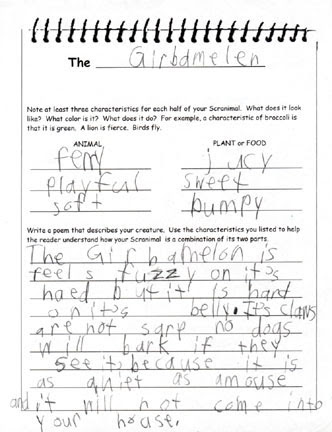 The Girbamelen
Note at least three characteristics for each half of your Scranimal. What does it look
like? What color is it? What does it do? For example, a characteristic of broccoli is
that it is green. A lion is fierce. Birds fly.
ANIMAL PLANT or FOOD
jucy
playful sweet
soft bumpy
Write a poem that describes your creature. Use the characteristics you listed to help
the reader understand how your Scranimal is a combination of its two parts.
The Girbamelon is
feels fuzzy on it's
haed, but it is hard
on it's belly. It's claws
are not sarp no dogs
will bark if they
see it, because it is
as quiet as amouse
and it will not come into
your house.